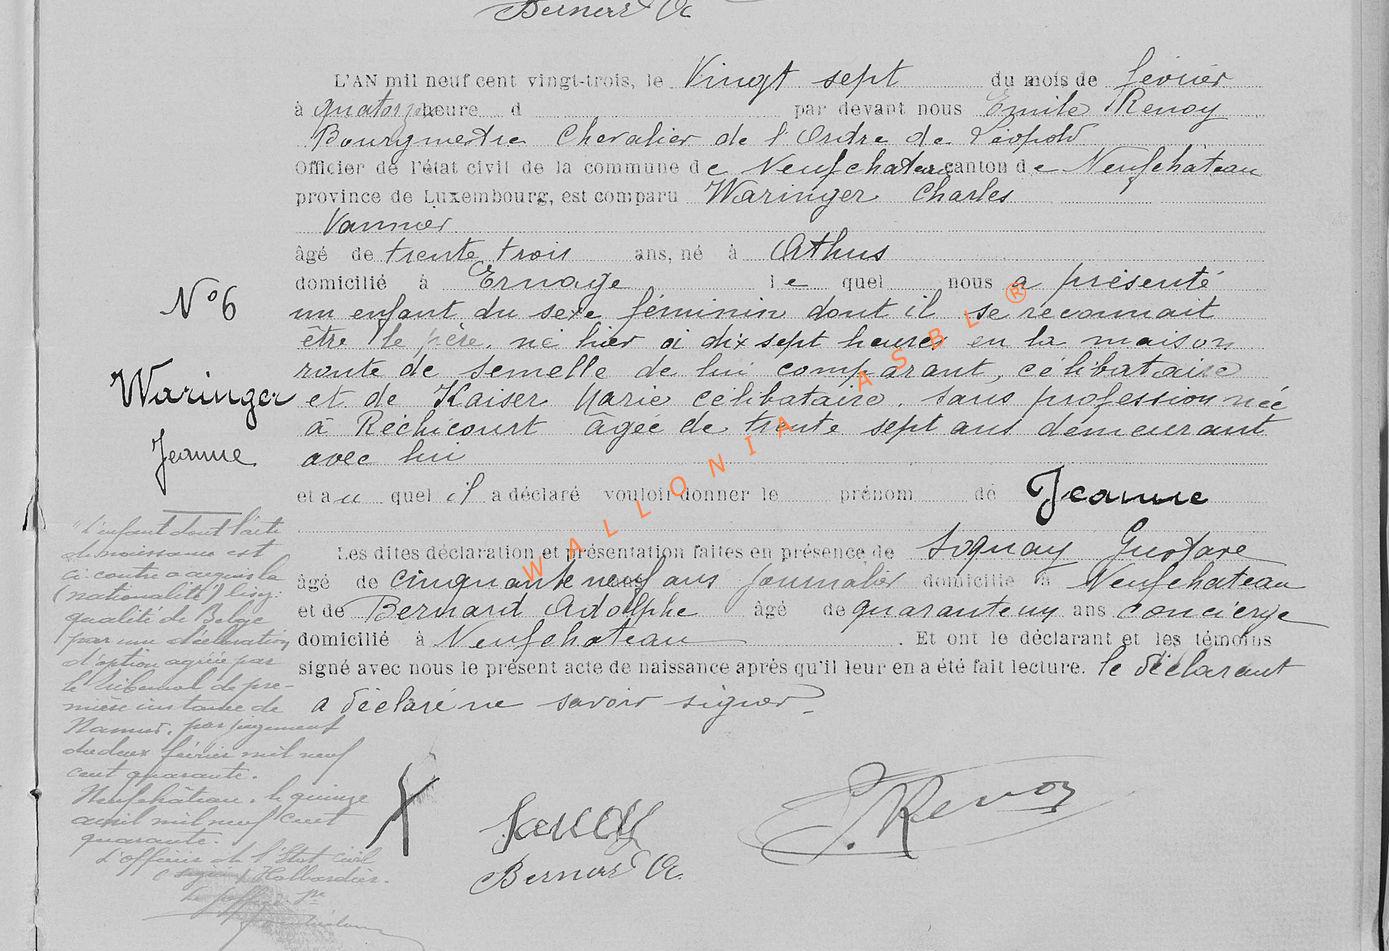 Bernard A
L'AN mil neuf cent vingt-trois, le Vingt sept du mois de février
à quatorze heure d par devant nous Emile Renoy
Bourgmestre Chevalier de l'Ordre de Léopold
Officier de l'état civil de la commune de Neufchateau canton de Neufchâteau
province de Luxembourg, est comparu Waringer Charles
Vannier
âgé de trente trois ans, né à Athus
domicilié à Ernage le quel nous a présenté
un enfant du sexe féminin dont il se reconnait
être le père, né hier à dix sept heures en la maison
route de semelle de lui comparant, célibataire
et de Kaiser Marie célibataire, sans profession née
à Rechicourt âgée de trente sept ans demeurant
avec lui
et au quel il a déclaré vouloir donner le prénom de Jeanne
Les dites déclaration et présentation faites en présence de Gustave
âgé de cinquante neuf ans journalier domicilié à Neufchateau
et de Bernard Adolphe âgé de quarante un ans concierge
domicilié à Neufchateau . Et ont le déclarant et les témoins
signé avec nous le présent acte de naissance après qu'il leur en a été fait lecture. le déclarant
a déclaré ne savoir signer.
N° 6
Waringer
Jeanne
"L'enfant dont l'acte
de naissance est
ci-contre a acquis la
(nationalité) ling:
qualité de Belge
par une déclaration
d'option agréée par
le tribunal de pre-
mière instance de
Namur, par jugement
du deux février mil neuf
cent quarante.
Neufchâteau, le quinze
avril mil neuf cent
quarante.
L'officier de l'Etat Civil
Bernard A.
E. Renoy
WALLONIA ASBL ®